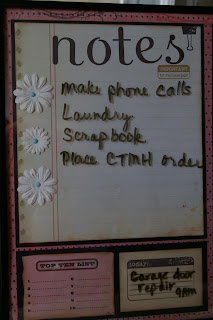 notes:
make phone calls
Laundry
Scrapbook
Place CTMH order
TOP TEN LIST
today:
Garage door
repair
9am